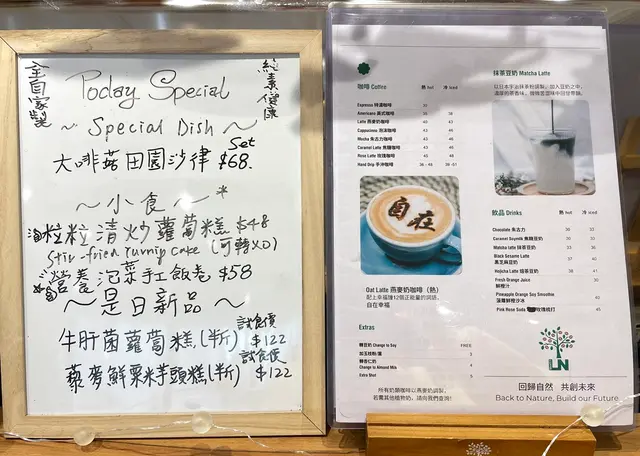 全自家製
純素健康
Today Special
~ Special Dish ~
大啡菇田園沙律 Set $68.
~ 小食 ~ *
粒粒清炒蘿蔔糕 $48
Stir-fried turnip cake (可轉XO)
營養泡菜手工飯卷 $58
~ 是日新品 ~
牛肝菌蘿蔔糕(半斤) 試食價 $122
藜麥鮮粟米芋頭糕(半斤) 試食價 $122
咖啡 Coffee 熱 hot 冷 iced
Espresso 特濃咖啡
Americano 美式咖啡
Latte 燕麥奶咖啡 40 43
Cappuccino 泡沫咖啡 43 46
Mocha 朱古力咖啡 43 46
Caramel Latte 焦糖咖啡 43 46
Rose Latte 玫瑰咖啡 45 48
Hard Drip 手沖咖啡
自在
Oat Latte 燕麥奶咖啡（熱）
配上幸福鐘12個正能量的詞語。
自在幸福
Extras
轉豆奶 Change to Soy FREE
加玉桂粉/蜜
轉杏仁奶
Change to Almond Milk
Extra Shot 5
所有奶類咖啡以燕麥奶調製，
若需其他植物奶，請向我們查詢！
抹茶豆奶 Matcha Latte
以日本宇治抹茶粉調製，加入豆奶之中，
飲品 Drinks 熱 hot 冷 iced
Chocolate 朱古力 30 33
Caramel Soymilk 焦糖豆奶
Matcha Latte 抹茶豆奶
Black Sesame Latte
黑芝麻豆奶
Hojicha Latte 焙茶豆奶 38 41
Fresh Orange Juice
鮮橙汁
Pineapple Orange Soy Smoothie
菠蘿鮮橙沙冰
Pink Rose Soda 玫瑰梳打
LN
回歸自然 共創未來
Back to Nature, Build our Future.